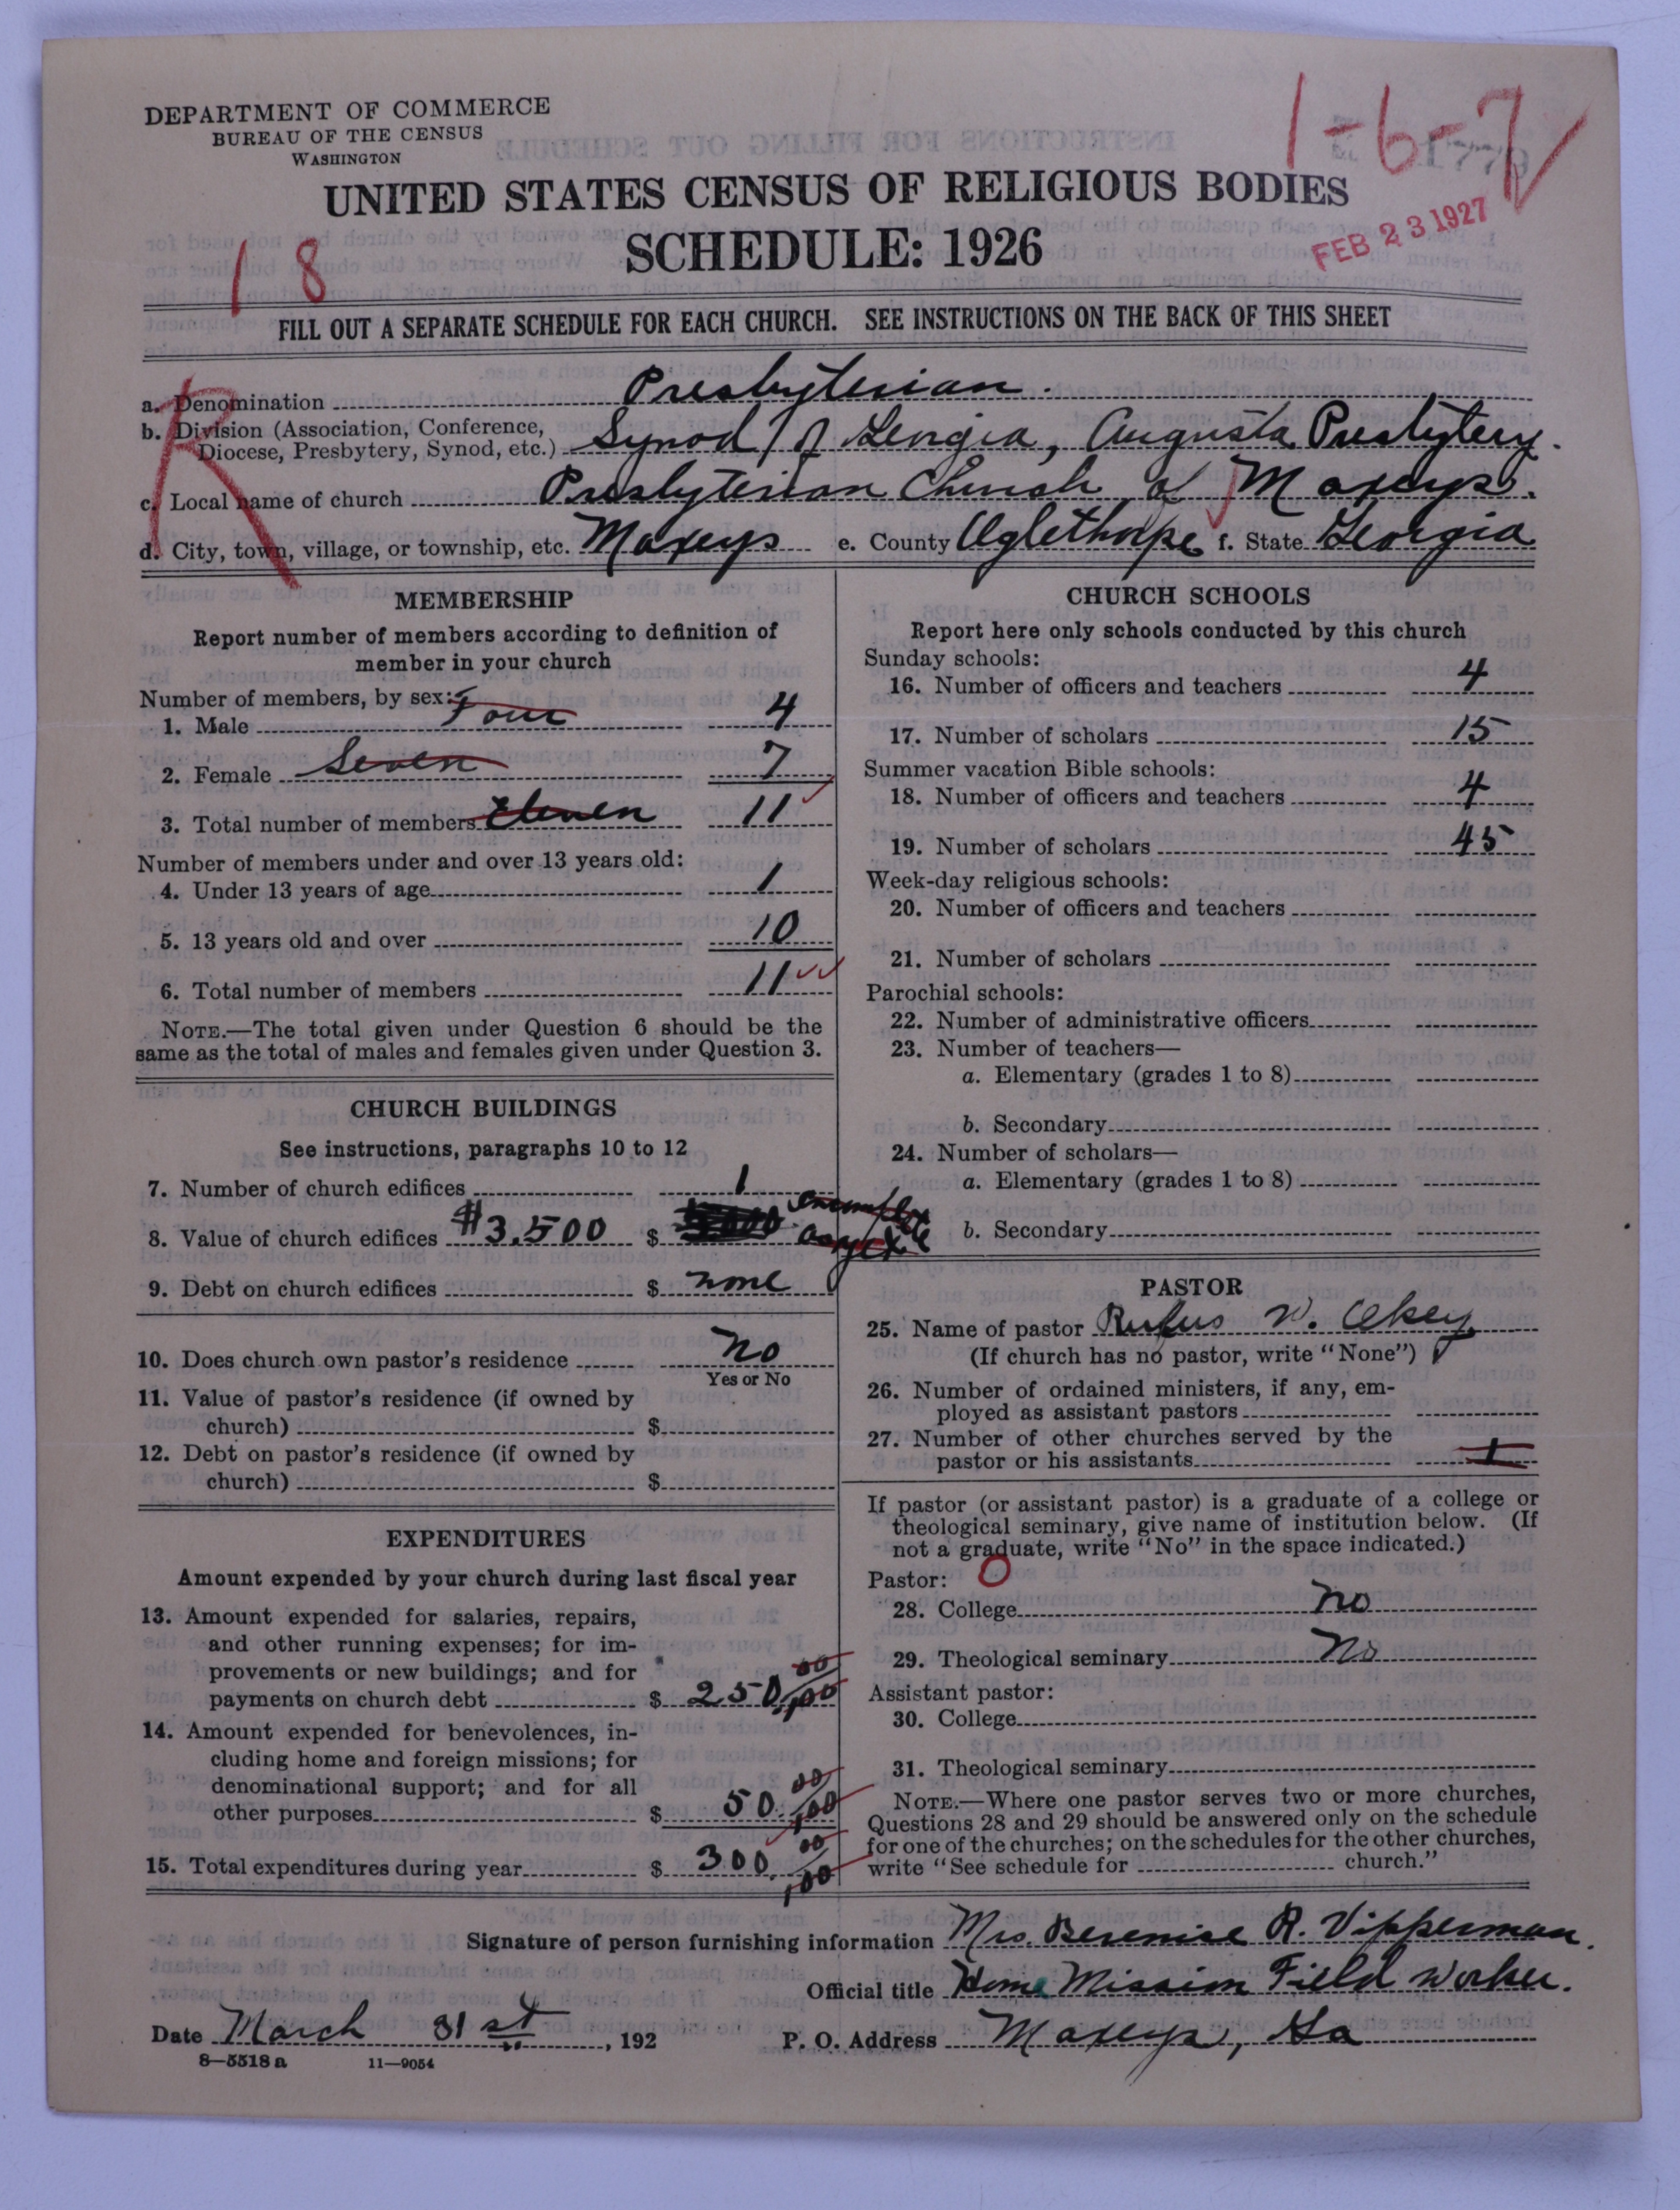 DEPARTMENT OF COMMERCE
BUREAU OF THE CENSUS
WASHINGTON
1-6-7
UNITED STATES CENSUS OF RELIGIOUS BODIES
SCHEDULE: 1926
FEB 23 1927
1 8
FILL OUT A SEPARATE SCHEDULE FOR EACH CHURCH. SEE INSTRUCTIONS ON THE BACK OF THIS SHEET
R
a. Denomination Presbyterian.
b. Division (Association, Conference,
Diocese, Presbytery, Synod, etc.) Synod of Georgia, Augusta Presbytery.
c. Local name of church Presbyterian Church of Maxeys.
d. City, town, village, or township, etc. Maxeys e. County Oglethorpe f. State Georgia
MEMBERSHIP
Report number of members according to definition of
member in your church
Number of members, by sex:
1. Male Four 4
2. Female Seven 7
3. Total number of members Eleven 11
Number of members under and over 13 years old:
4. Under 13 years of age 1
5. 13 years old and over 10
6. Total number of members 11
NOTE.—The total given under Question 6 should be the
same as the total of males and females given under Question 3.
CHURCH BUILDINGS
See instructions, paragraphs 10 to 12
7. Number of church edifices 1
8. Value of church edifices #3,500 $
9. Debt on church edifices $ none
10. Does church own pastor's residence No
Yes or No
11. Value of pastor's residence (if owned by
church) $
12. Debt on pastor's residence (if owned by
church) $
EXPENDITURES
Amount expended by your church during last fiscal year
13. Amount expended for salaries, repairs,
and other running expenses; for im-
provements or new buildings; and for
payments on church debt $ 250 00/100
14. Amount expended for benevolences, in-
cluding home and foreign missions; for
denominational support; and for all
other purposes $ 50. 00/100
15. Total expenditures during year $ 300. 00/100
CHURCH SCHOOLS
Report here only schools conducted by this church
Sunday schools:
16. Number of officers and teachers 4
17. Number of scholars 15
Summer vacation Bible schools:
18. Number of officers and teachers 4
19. Number of scholars 45
Week-day religious schools:
20. Number of officers and teachers
21. Number of scholars
Parochial schools:
22. Number of administrative officers
23. Number of teachers—
a. Elementary (grades 1 to 8)
b. Secondary
24. Number of scholars—
a. Elementary (grades 1 to 8)
b. Secondary
PASTOR
25. Name of pastor Rufus W. Okey
(If church has no pastor, write "None")
26. Number of ordained ministers, if any, em-
ployed as assistant pastors
27. Number of other churches served by the
pastor or his assistants 1
If pastor (or assistant pastor) is a graduate of a college or
theological seminary, give name of institution below. (If
not a graduate, write "No" in the space indicated.)
Pastor: O
28. College no
29. Theological seminary No
Assistant pastor:
30. College
31. Theological seminary
NOTE.—Where one pastor serves two or more churches,
Questions 28 and 29 should be answered only on the schedule
for one of the churches; on the schedules for the other churches,
write "See schedule for church."
Signature of person furnishing information Mrs. Berenise R. Vipperman.
Official title Home Mission Field Worker.
Date March 31st, 192 P. O. Address Maxeys, Ga
8—5518 a 11—9054